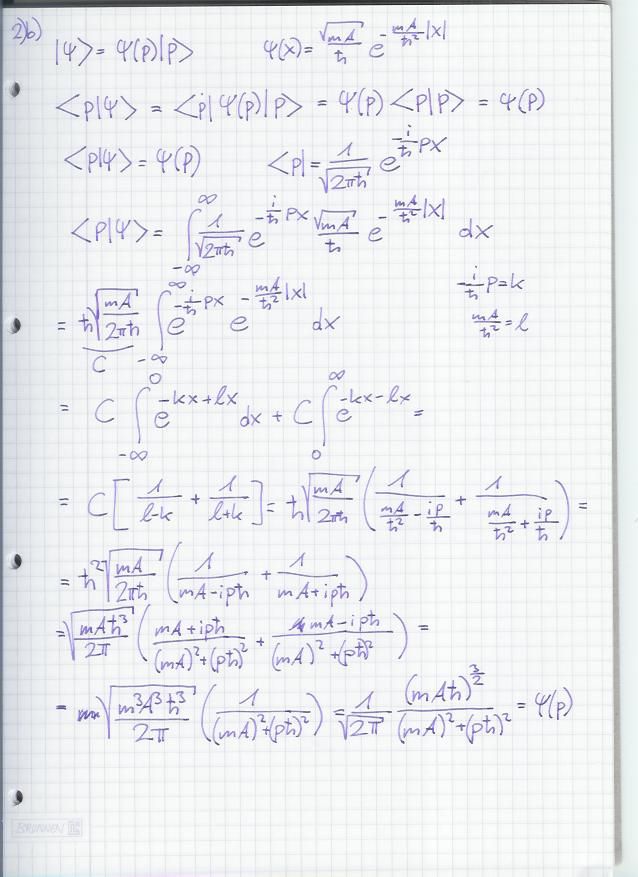 2)b)
|ψ> = ψ(p)|p>    ψ(x) = √(mA)/ħ e^(-mA/ħ² |x|)
<p|ψ> = <p|ψ(p)|p> = ψ(p) <p|p> = ψ(p)
<p|ψ> = ψ(p)    <p| = 1/√(2πħ) e^(-i/ħ px)
<p|ψ> = ∫_{-∞}^{∞} 1/√(2πħ) e^(-i/ħ px) √(mA)/ħ e^(-mA/ħ² |x|) dx
= ħ√(mA/2πħ) ∫_{-∞}^{∞} e^(-i/ħ px) e^(-mA/ħ² |x|) dx    -i/ħ p = k
C    mA/ħ² = l
= C ∫_{-∞}^{0} e^(-kx+lx) dx + C ∫_{0}^{∞} e^(-kx-lx) =
= C [ 1/(l-k) + 1/(l+k) ] = ħ√(mA/2πħ) ( 1/(mA/ħ² - ip/ħ) + 1/(mA/ħ² + ip/ħ) ) =
= ħ²√(mA/2πħ) ( 1/(mA-ipħ) + 1/(mA+ipħ) )
= √(mAħ³/2π) ( (mA+ipħ)/((mA)²+(pħ)²) + (mA-ipħ)/((mA)²+(pħ)²) ) =
= √(m³A³ħ³/2π) ( 1/((mA)²+(pħ)²) ) = 1/√(2π) (mAħ)^(3/2)/((mA)²+(pħ)²) = ψ(p)
BRUNNEN